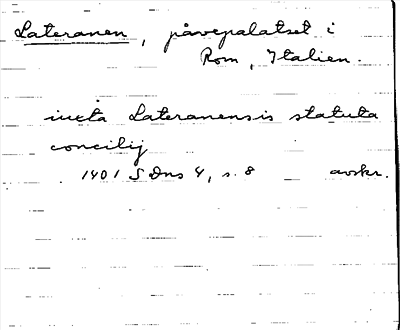 Lateranen, påvepalatset i
Rom, Italien.
iuxta Lateranensis statuta
concilij
1401 SDns 4, s. 8 avskr.